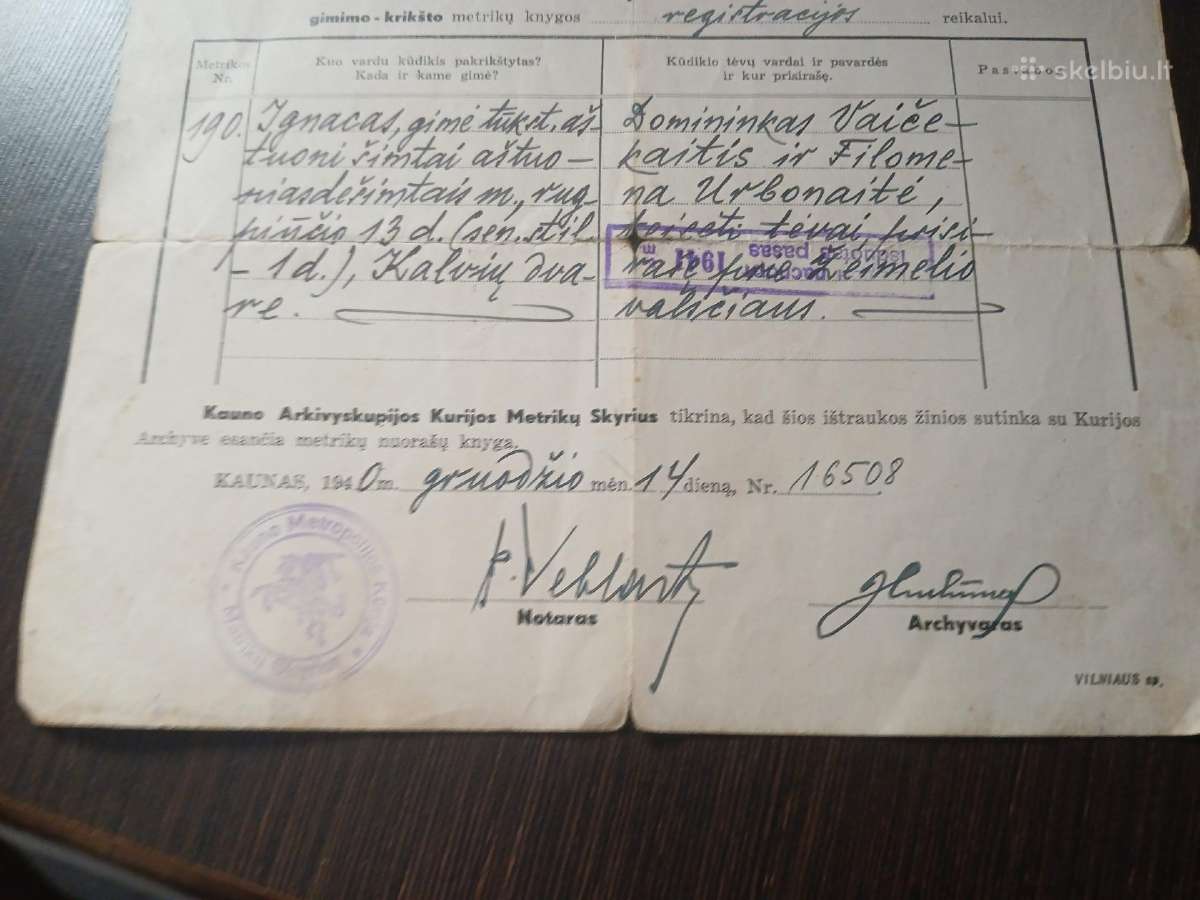 gimimo - krikšto metrikų knygos registracijos reikalui.
skelbiu.lt
Metrikos Nr.
Kuo vardu kūdikis pakrikštytas?
Kada ir kame gimė?
Kūdikio tėvų vardai ir pavardės
ir kur prisirašę.
190.
Ignacas, gimė tūkst. aš-
tuoni šimtai aštuo-
niasdešimtais m., rug-
piūčio 13 d. (sen. stil.
- 1 d.), Kalvių dva-
re.
Domininkas Vaiče-
kaitis ir Filome-
na Urbonaitė,
tėvai, prisi-
rašę prie Žeimelio
valsčiaus.
1941 m
pasas
Kauno Arkivyskupijos Kurijos Metrikų Skyrius tikrina, kad šios ištraukos žinios sutinka su Kurijos
Archyve esančia metrikų nuorašų knyga.
KAUNAS, 1940 m. gruodžio mėn. 14 dieną, Nr. 16508
Kauno Metropolijos Kurija
Notaras
Archyvaras
VILNIAUS sp.